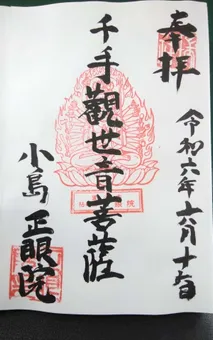 奉拝
令和六年六月十六日
千手観世音菩薩
小島 正眼院